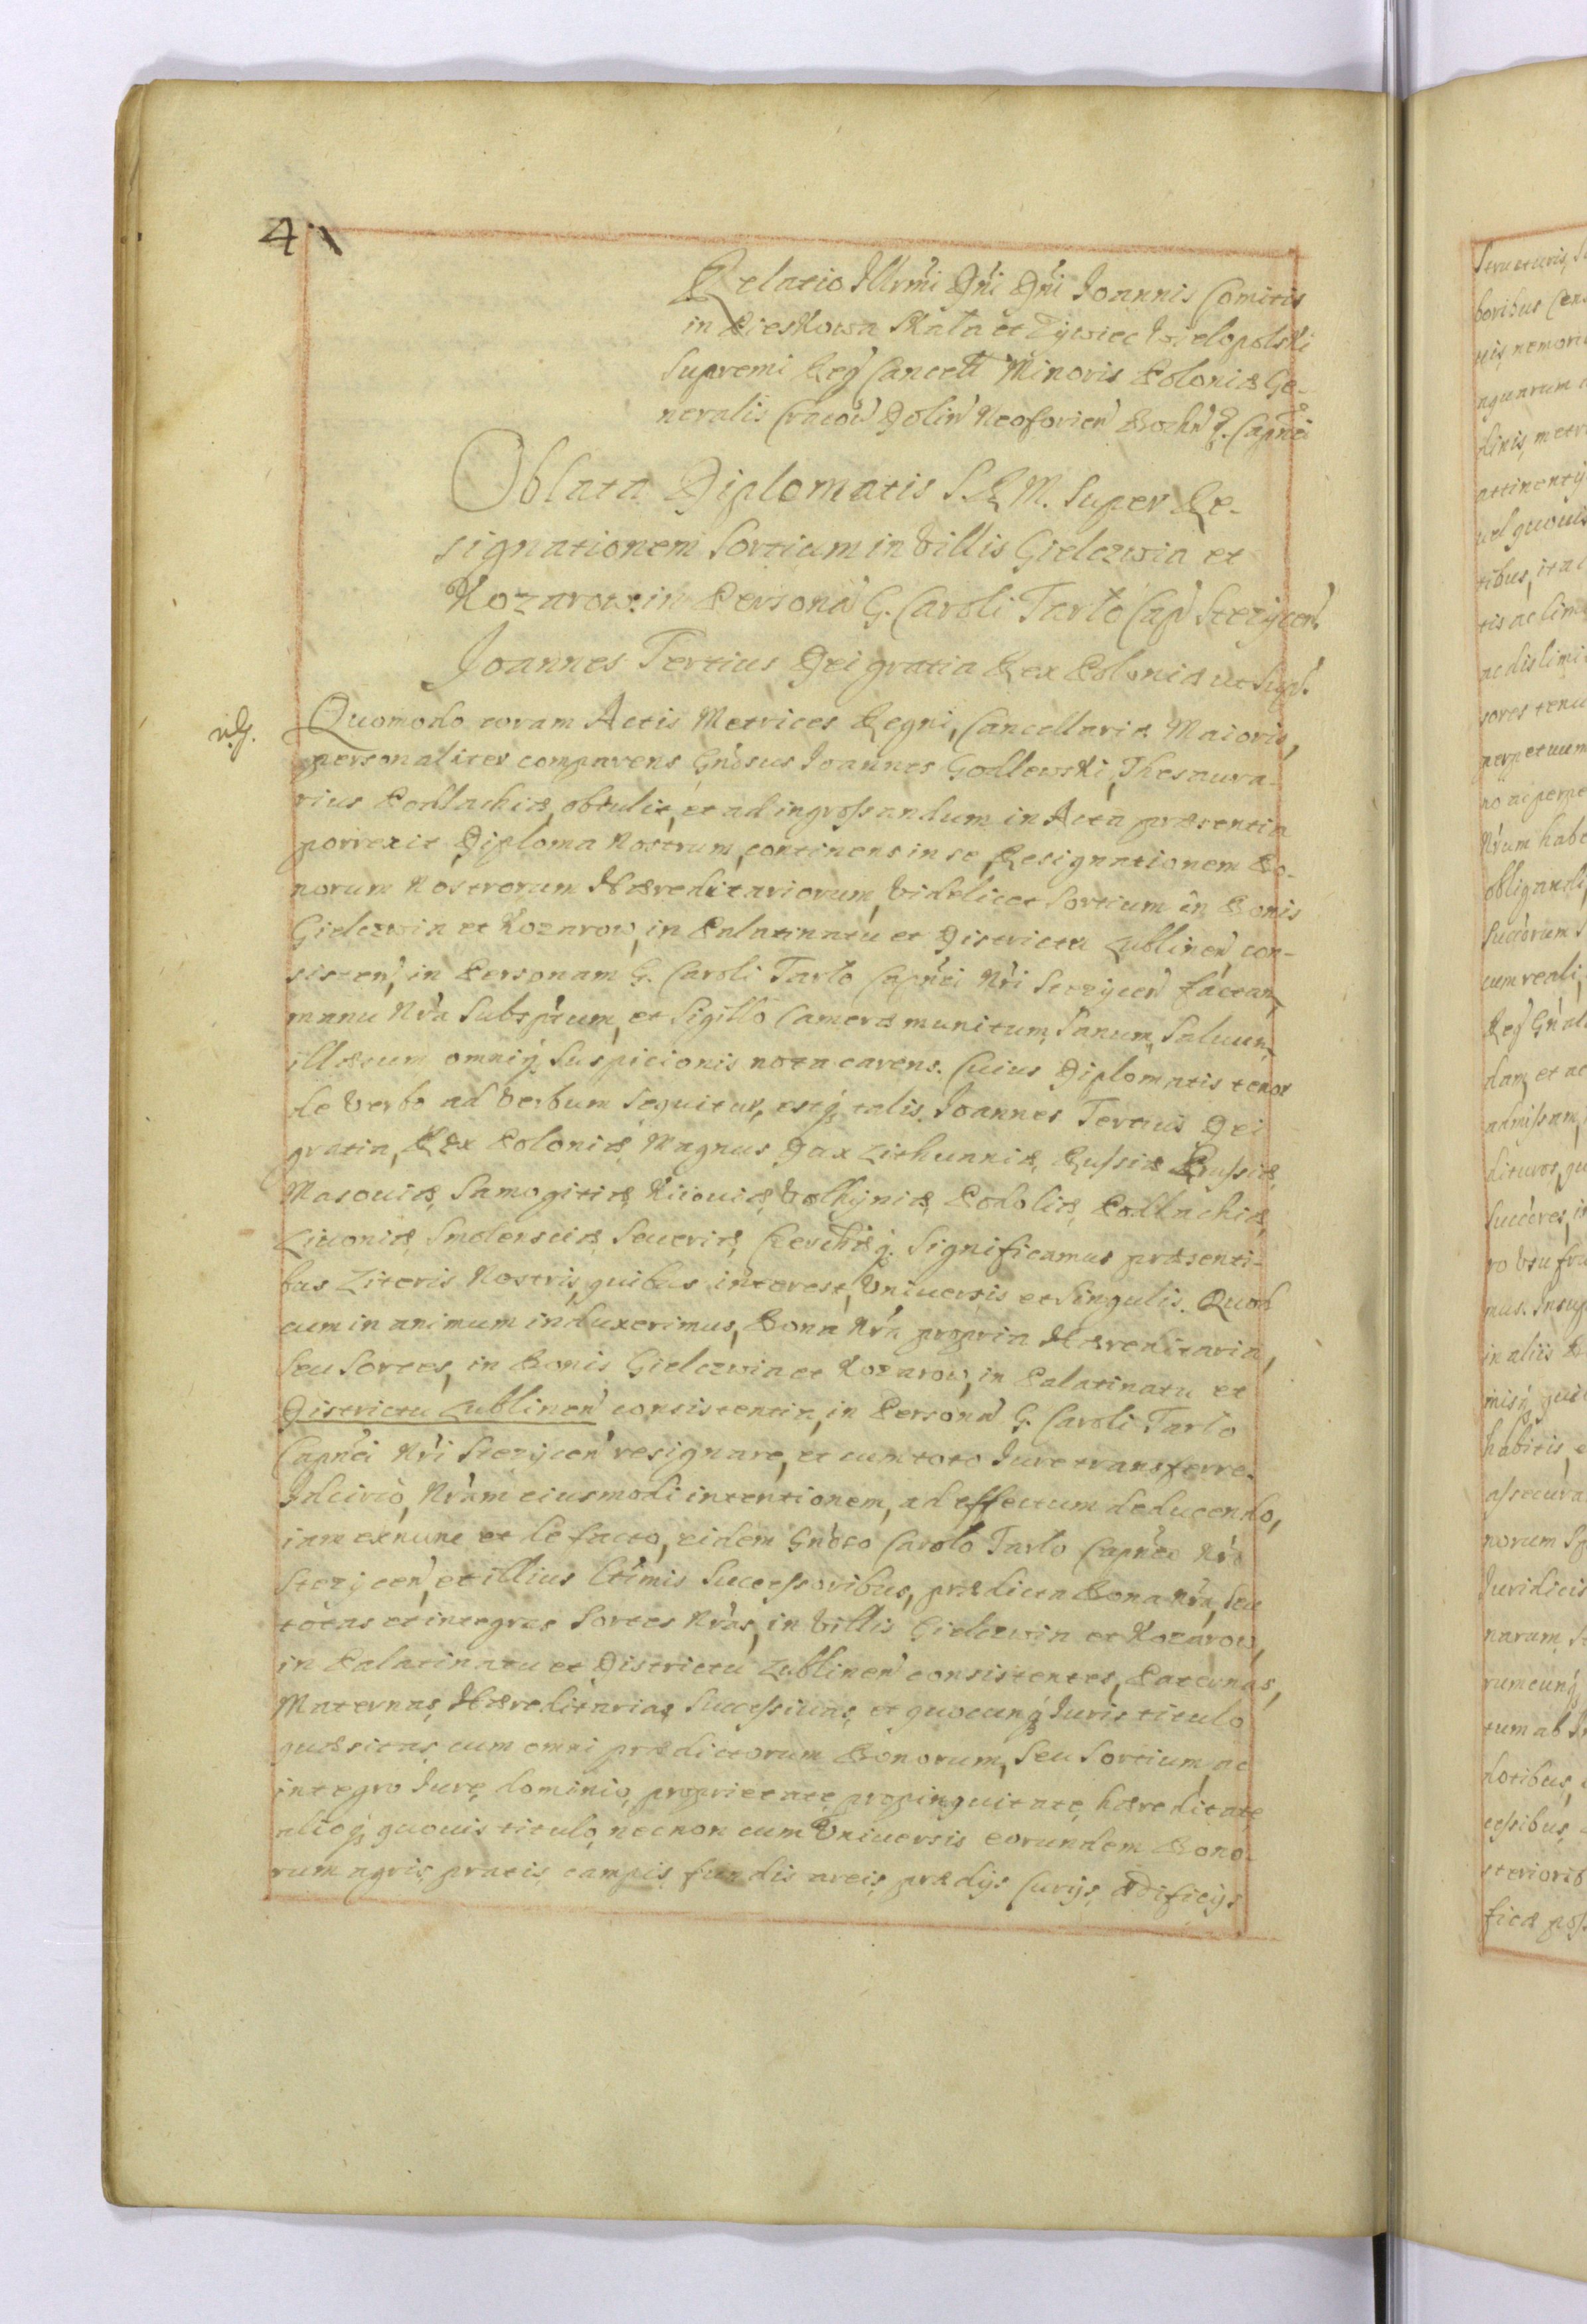 4
Relatio Illrmi Dni Dni Joannis Comitis
in Pieskowa Skała et Zÿwiec Wielopolski
Supremi Reg Cancell Minoris Poloniæ Ge-
neralis Cracov Dolin Neoforien Bochn &. Capnei
Oblata Diplomatis S.R.M. super Re-
signationem Sortium in Villis Giełczwia et
Kozarow in Persona G. Caroli Tarło Cap Stezÿcen
Joannes Tertius Dei gratia Rex Poloniæ ut sup.
Quomodo coram Actis Metrices Regni, Cancellariæ Maioris,
personaliter comparens Gnosus Joannes Godlewski, Thesaura-
rius Podlachiæ, obtulit, et ad ingrossandum in Acta præsentia
porrexit Diploma Nostrum, continens in se, Resignationem Bo-
norum Nostrorum Hæreditariorum, Videlicet Sortium in Bonis
Giełczwia et Kozarow, in Palatinatu et Districtu Lublinen con-
sisten, in Personam G. Caroli Tarło Capnei Nri Stezÿcen factam,
manu Nra Subsptum, et Sigillo Cameræ munitum, Sanum, Saluum,
illæsum omniq. Suspicionis nota carens. Cuius Diplomatis tenor
de Verbo ad Verbum Sequitur, estq. talis. Joannes Tertius Dei
gratia, Rex Poloniæ, Magnus Dux Lithuaniæ, Russiæ Prussiæ,
Masouiæ, Samogitiæ, Kiiouiæ, Volhÿniæ, Podoliæ, Podlachiæ,
Liuoniæ, Smolensciæ, Seueriæ, Czerchiæq. Significamus præsenti-
bus Literis Nostris, quibus interest, Vniuersis et Singulis. Quod
cum in animum induxerimus, Bona Nra propria Hæreditaria,
Seu Sortes, in Bonis Giełczwia et Kozarow, in Palatinatu et
Districtu Lublinen consistentia, in Persona G. Caroli Tarło
Capnei Nri Stezÿcen resignare, et cum toto Jure transferre.
Idcircò, Nram eiusmodi intentionem, ad effectum deducendo,
iam exnunc et de facto, eidem Gnoso Carolo Tarło Capneo Nro
Stezÿcen, et illius ltimis Successoribus, prædicta Bona Nra, seu
totas et integras Sortes Nras, in Villis Giełczwia et Kozarow,
in Palatinatu et Districtu Lublinen consistentes, Paternas,
Maternas, Hæreditarias, Successiuas, et quocunq Juris titulo
quæsitas, cum omni prædictorum Bonorum, Seu Sortium, ac
integro Jure, dominio, proprietate, propinquitate, hæreditate
alioq. quouis titulo, necnon cum Vniuersis eorundem Bono-
rum agris, pratis, campis, fundis areis, prædijs Curijs, ædificijs